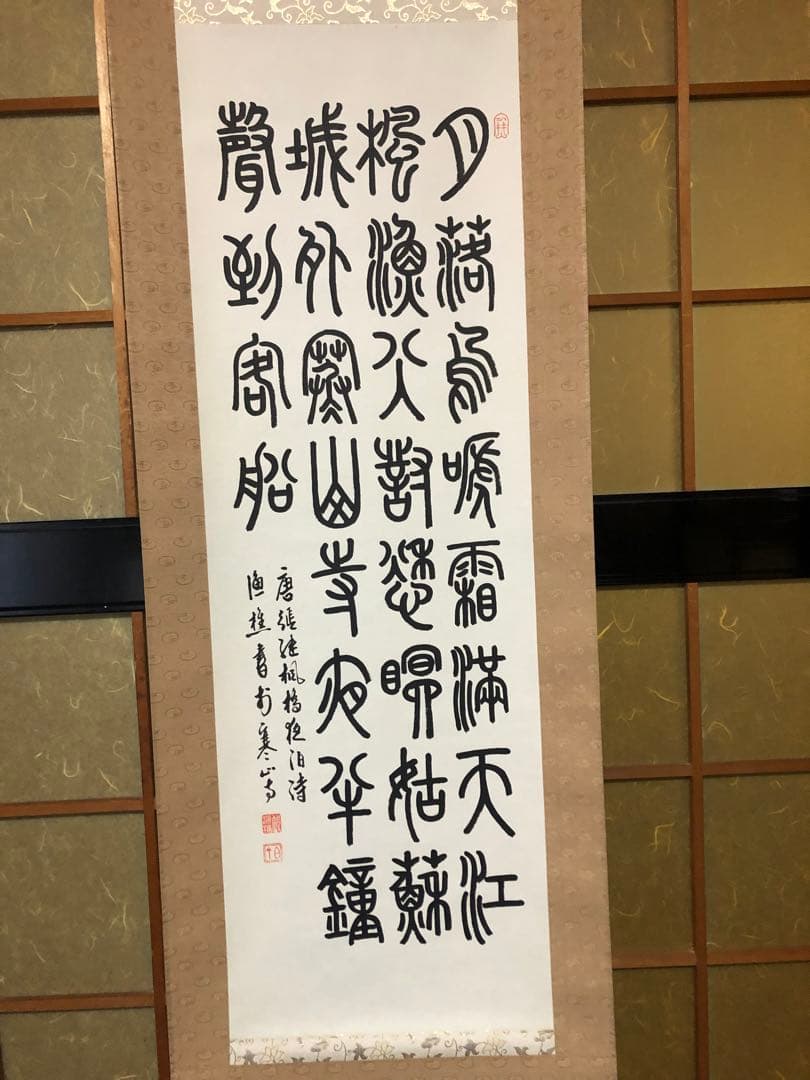 月落烏嗁霜滿天江
楓漁火對愁眠姑蘇
城外寒山寺夜半鐘
聲到客船
唐張繼楓橋夜泊詩
漁樵書於寒山寺